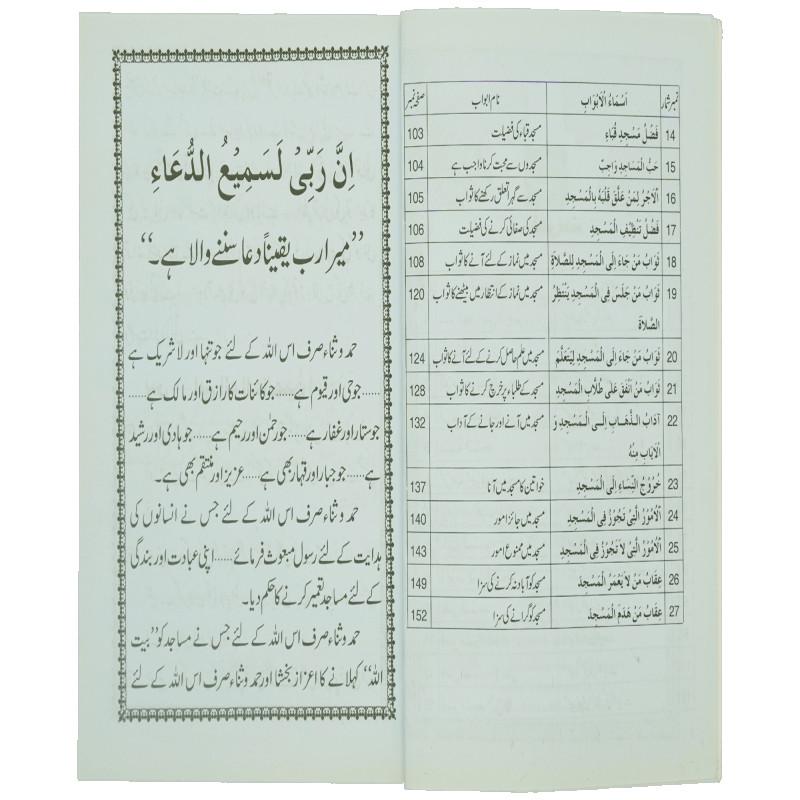 نمبر شمار اَسْمَاءُ الْاَبْوَابِ نام ابواب صفحہ نمبر
14 فَضْلُ مَسْجِدِ قُبَاءِ مسجد قباء کی فضیلت 103
15 حُبُّ الْمَسَاجِدِ وَاجِبٌ مسجدوں سے محبت کرنا واجب ہے 104
16 اَلْاَجْرُ لِمَنْ عَلَّقَ قَلْبَهُ بِالْمَسْجِدِ مسجد سے گہرا تعلق رکھنے کا ثواب 105
17 فَضْلُ تَنْظِيْفِ الْمَسْجِدِ مسجد کی صفائی کرنے کی فضیلت 106
18 ثَوَابُ مَنْ جَاءَ اِلَى الْمَسْجِدِ لِلصَّلاَةِ مسجد میں نماز کے لئے آنے کا ثواب 108
19 ثَوَابُ مَنْ جَلَسَ فِى الْمَسْجِدِ يَنْتَظِرُ مسجد میں نماز کے انتظار میں بیٹھنے کا ثواب 120
الصَّلاَةَ
20 ثَوَابُ مَنْ جَاءَ اِلَى الْمَسْجِدِ لِيَتَعَلَّمَ مسجد میں علم حاصل کرنے کے لئے آنے کا ثواب 124
21 ثَوَابُ مَنْ اَنْفَقَ عَلَى طُلاَّبِ الْمَسْجِدِ مسجد کے طلباء پر خرچ کرنے کا ثواب 128
22 آدَابُ الذَّهَابِ اِلَى الْمَسْجِدِ وَ مسجد میں آنے اور جانے کے آداب 132
الْاِيَابِ مِنْهُ
23 خُرُوْجُ النِّسَاءِ اِلَى الْمَسْجِدِ خواتین کا مسجد میں آنا 137
24 اَلْاُمُوْرُ الَّتِىْ تَجُوْزُ فِى الْمَسْجِدِ مسجد میں جائز امور 140
25 اَلْاُمُوْرُ الَّتِىْ لاَ تَجُوْزُ فِى الْمَسْجِدِ مسجد میں ممنوع امور 143
26 عِقَابُ مَنْ لاَ يَعْمَرُ الْمَسْجِدَ مسجد کو آباد نہ کرنے کی سزا 149
27 عِقَابُ مَنْ هَدَمَ الْمَسْجِدَ مسجد کو گرانے کی سزا 152
اِنَّ رَبِّىْ لَسَمِيْعُ الدُّعَاءِ
”میرا رب یقیناً دعا سننے والا ہے۔“
حمد و ثناء صرف اس اللہ کے لئے جو تنہا اور لاشریک ہے
.....جو حی اور قیوم ہے.....جو کائنات کا رازق اور مالک ہے.....
جو ستار اور غفار ہے.....جو رحمٰن اور رحیم ہے.....جو ہادی اور رشید
ہے.....جو جبار اور قہار بھی ہے.....عزیز اور منتقم بھی ہے۔
حمد و ثناء صرف اس اللہ کے لئے جس نے انسانوں کی
ہدایت کے لئے رسول مبعوث فرمائے.....اپنی عبادت اور بندگی
کے لئے مساجد تعمیر کرنے کا حکم دیا۔
حمد و ثناء صرف اس اللہ کے لئے جس نے مساجد کو ”بیت
اللہ“ کہلانے کا اعزاز بخشا اور حمد و ثناء صرف اس اللہ کے لئے